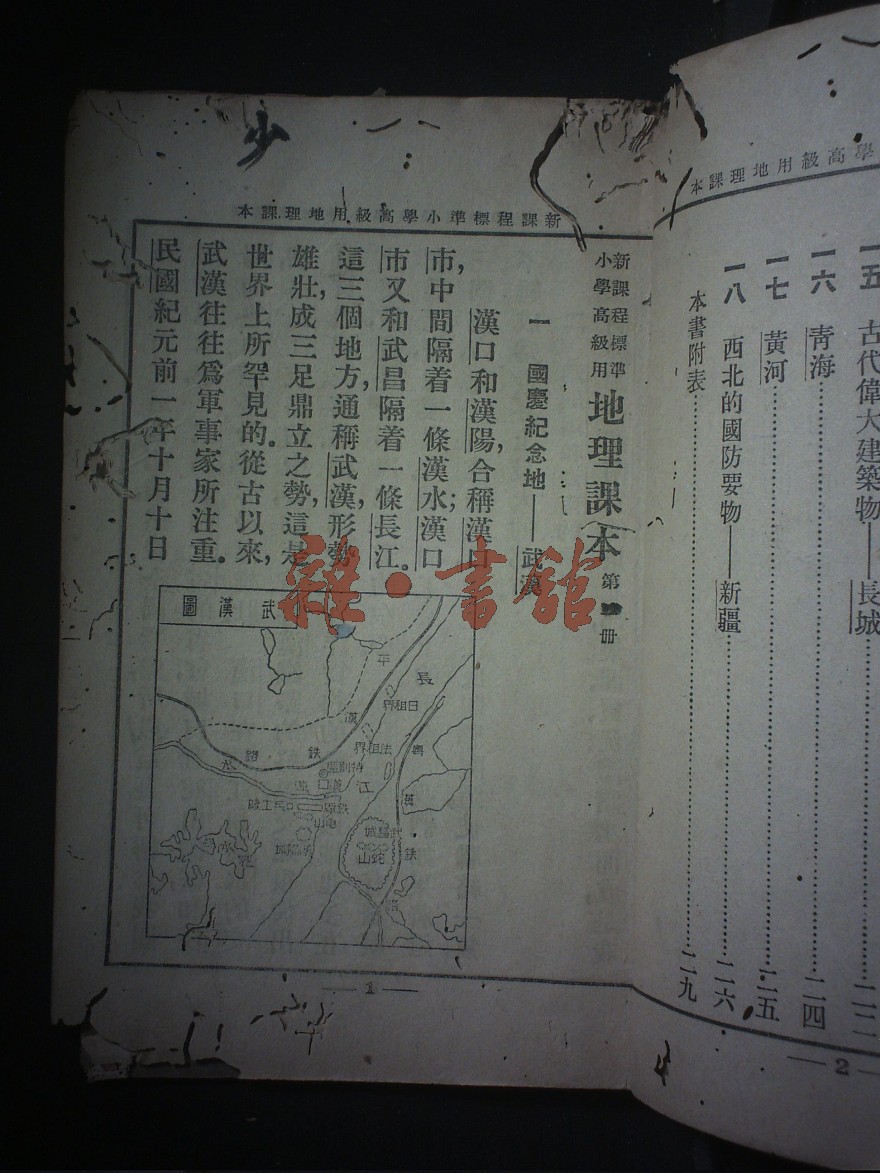 少
本課理地用級高學小準標程課新
新課程標準
小學高級用
地理課本
第 册
一 國慶紀念地——武漢
漢口和漢陽,合稱漢口
市,中間隔着一條漢水;漢口
市又和武昌隔着一條長江。
這三個地方,通稱武漢,形勢
雄壯,成三足鼎立之勢,這是
世界上所罕見的。從古以來,
武漢往往爲軍事家所注重。
民國紀元前一年十月十日
圖漢武
平
漢
鐵
路
長
江
日租界
法租界
特別區
漢口
漢
水
龜山
漢陽城
武昌城
蛇山
粵
漢
鐵
路
— 1 —
學高級用地理課本
一五 古代偉大建築物——長城……二二
一六 靑海……二四
一七 黃河……二五
一八 西北的國防要物——新疆……二六
本書附表……二九
— 2 —
雜·書館